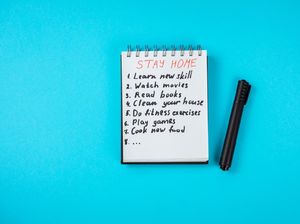 STAY HOME
1. Learn new skill
2. Watch movies
3. Read books
4. Clean your house
5. Do fitness exercises
6. Play games
7. Cook new food
8. ...